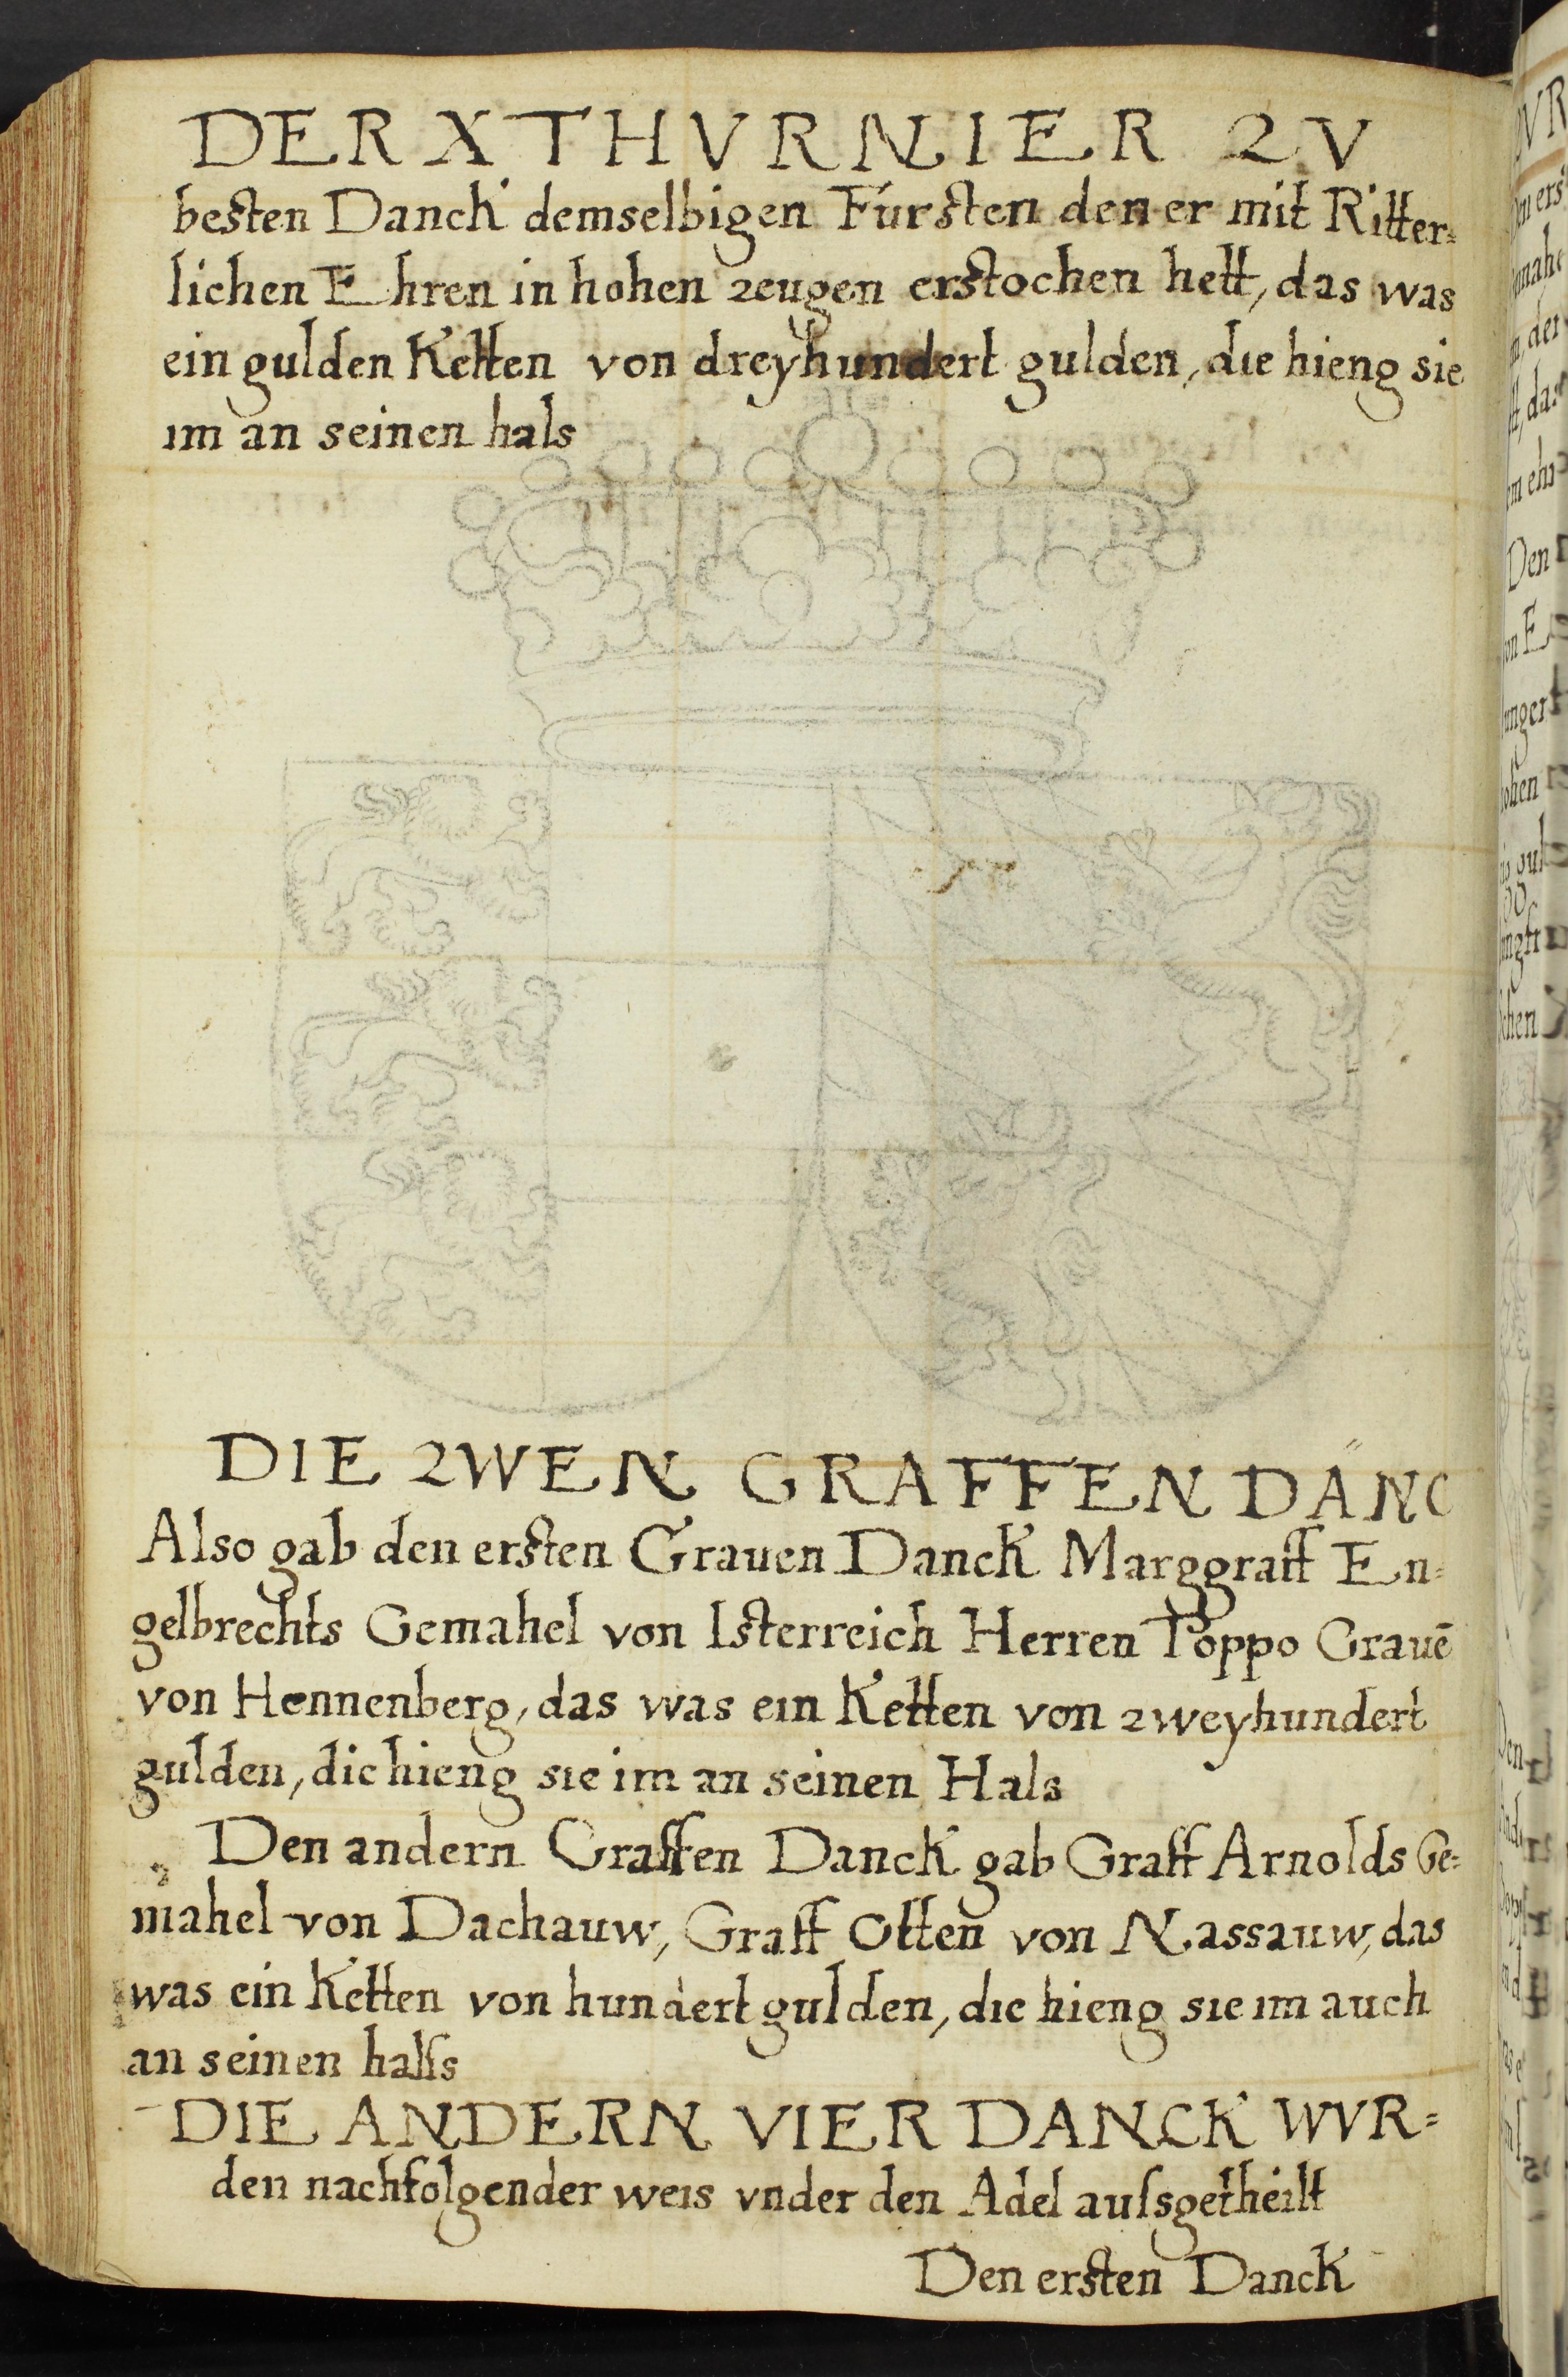 DER X THVRNIER ZV
besten Danck demselbigen Fürsten den er mit Ritter=
lichen Ehren in hohen zeugen erstochen hett, das was
ein gulden Ketten von dreyhundert gulden, die hieng sie
im an seinen hals
DIE ZWEN GRAFFEN DÄNC
Also gab den ersten Grauen Danck Marggraff En=
gelbrechts Gemahel von Isterreich Herren Poppo Grauē
von Hennenberg, das was ein Ketten von zweyhundert
gulden, die hieng sie im an seinen Hals
Den andern Graffen Danck gab Graff Arnolds Ge=
mahel von Dachauw, Graff Otten von Nassauw, das
was ein Ketten von hundert gulden, die hieng sie im auch
an seinen halſs
DIE ANDERN VIER DANCK WVR=
den nachfolgender weis vnder den Adel auſsgetheilt
Den ersten Danck